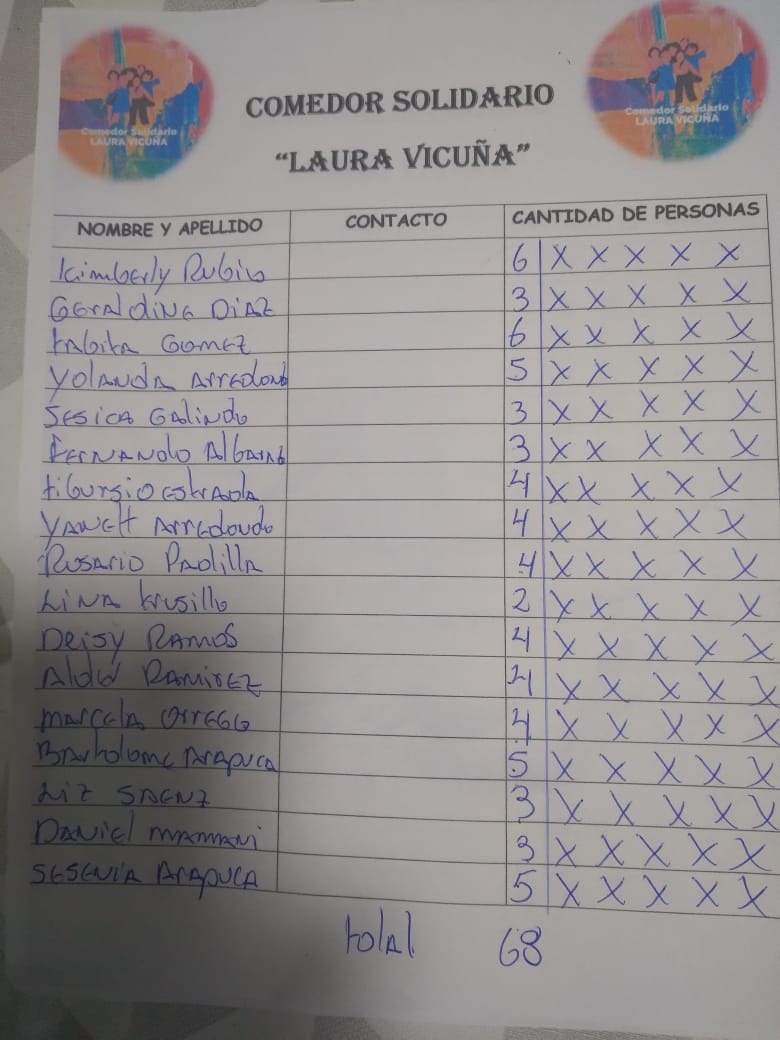 Comedor Solidario
LAURA VICUÑA
COMEDOR SOLIDARIO
"LAURA VICUÑA"
Comedor Solidario
LAURA VICUÑA
NOMBRE Y APELLIDO CONTACTO CANTIDAD DE PERSONAS
Kimberly Rubio 6 X X X X X
GerAldiNe DiAz 3 X X X X X
tabita Gomez 6 X X X X X
YOLANDA ArreDond 5 X X X X X
SesicA GaliNdo 3 X X X X X
FerNANDo 3 X X X X X
tibursio estrADA 4 X X X X X
YANett Arredondo 4 X X X X X
Rosario PADillA 4 X X X X X
LiNA krusillo 2 X X X X X
Deisy RAMOS 4 X X X X X
Aldo RAMirez 4 X X X X X
MArcelA Orrego 4 X X X X X
BArtholome ArApucA 5 X X X X X
Liz SAENZ 3 X X X X X
DANiel mAmANi 3 X X X X X
SeSeNiA ArApucA 5 X X X X X
totAl 68